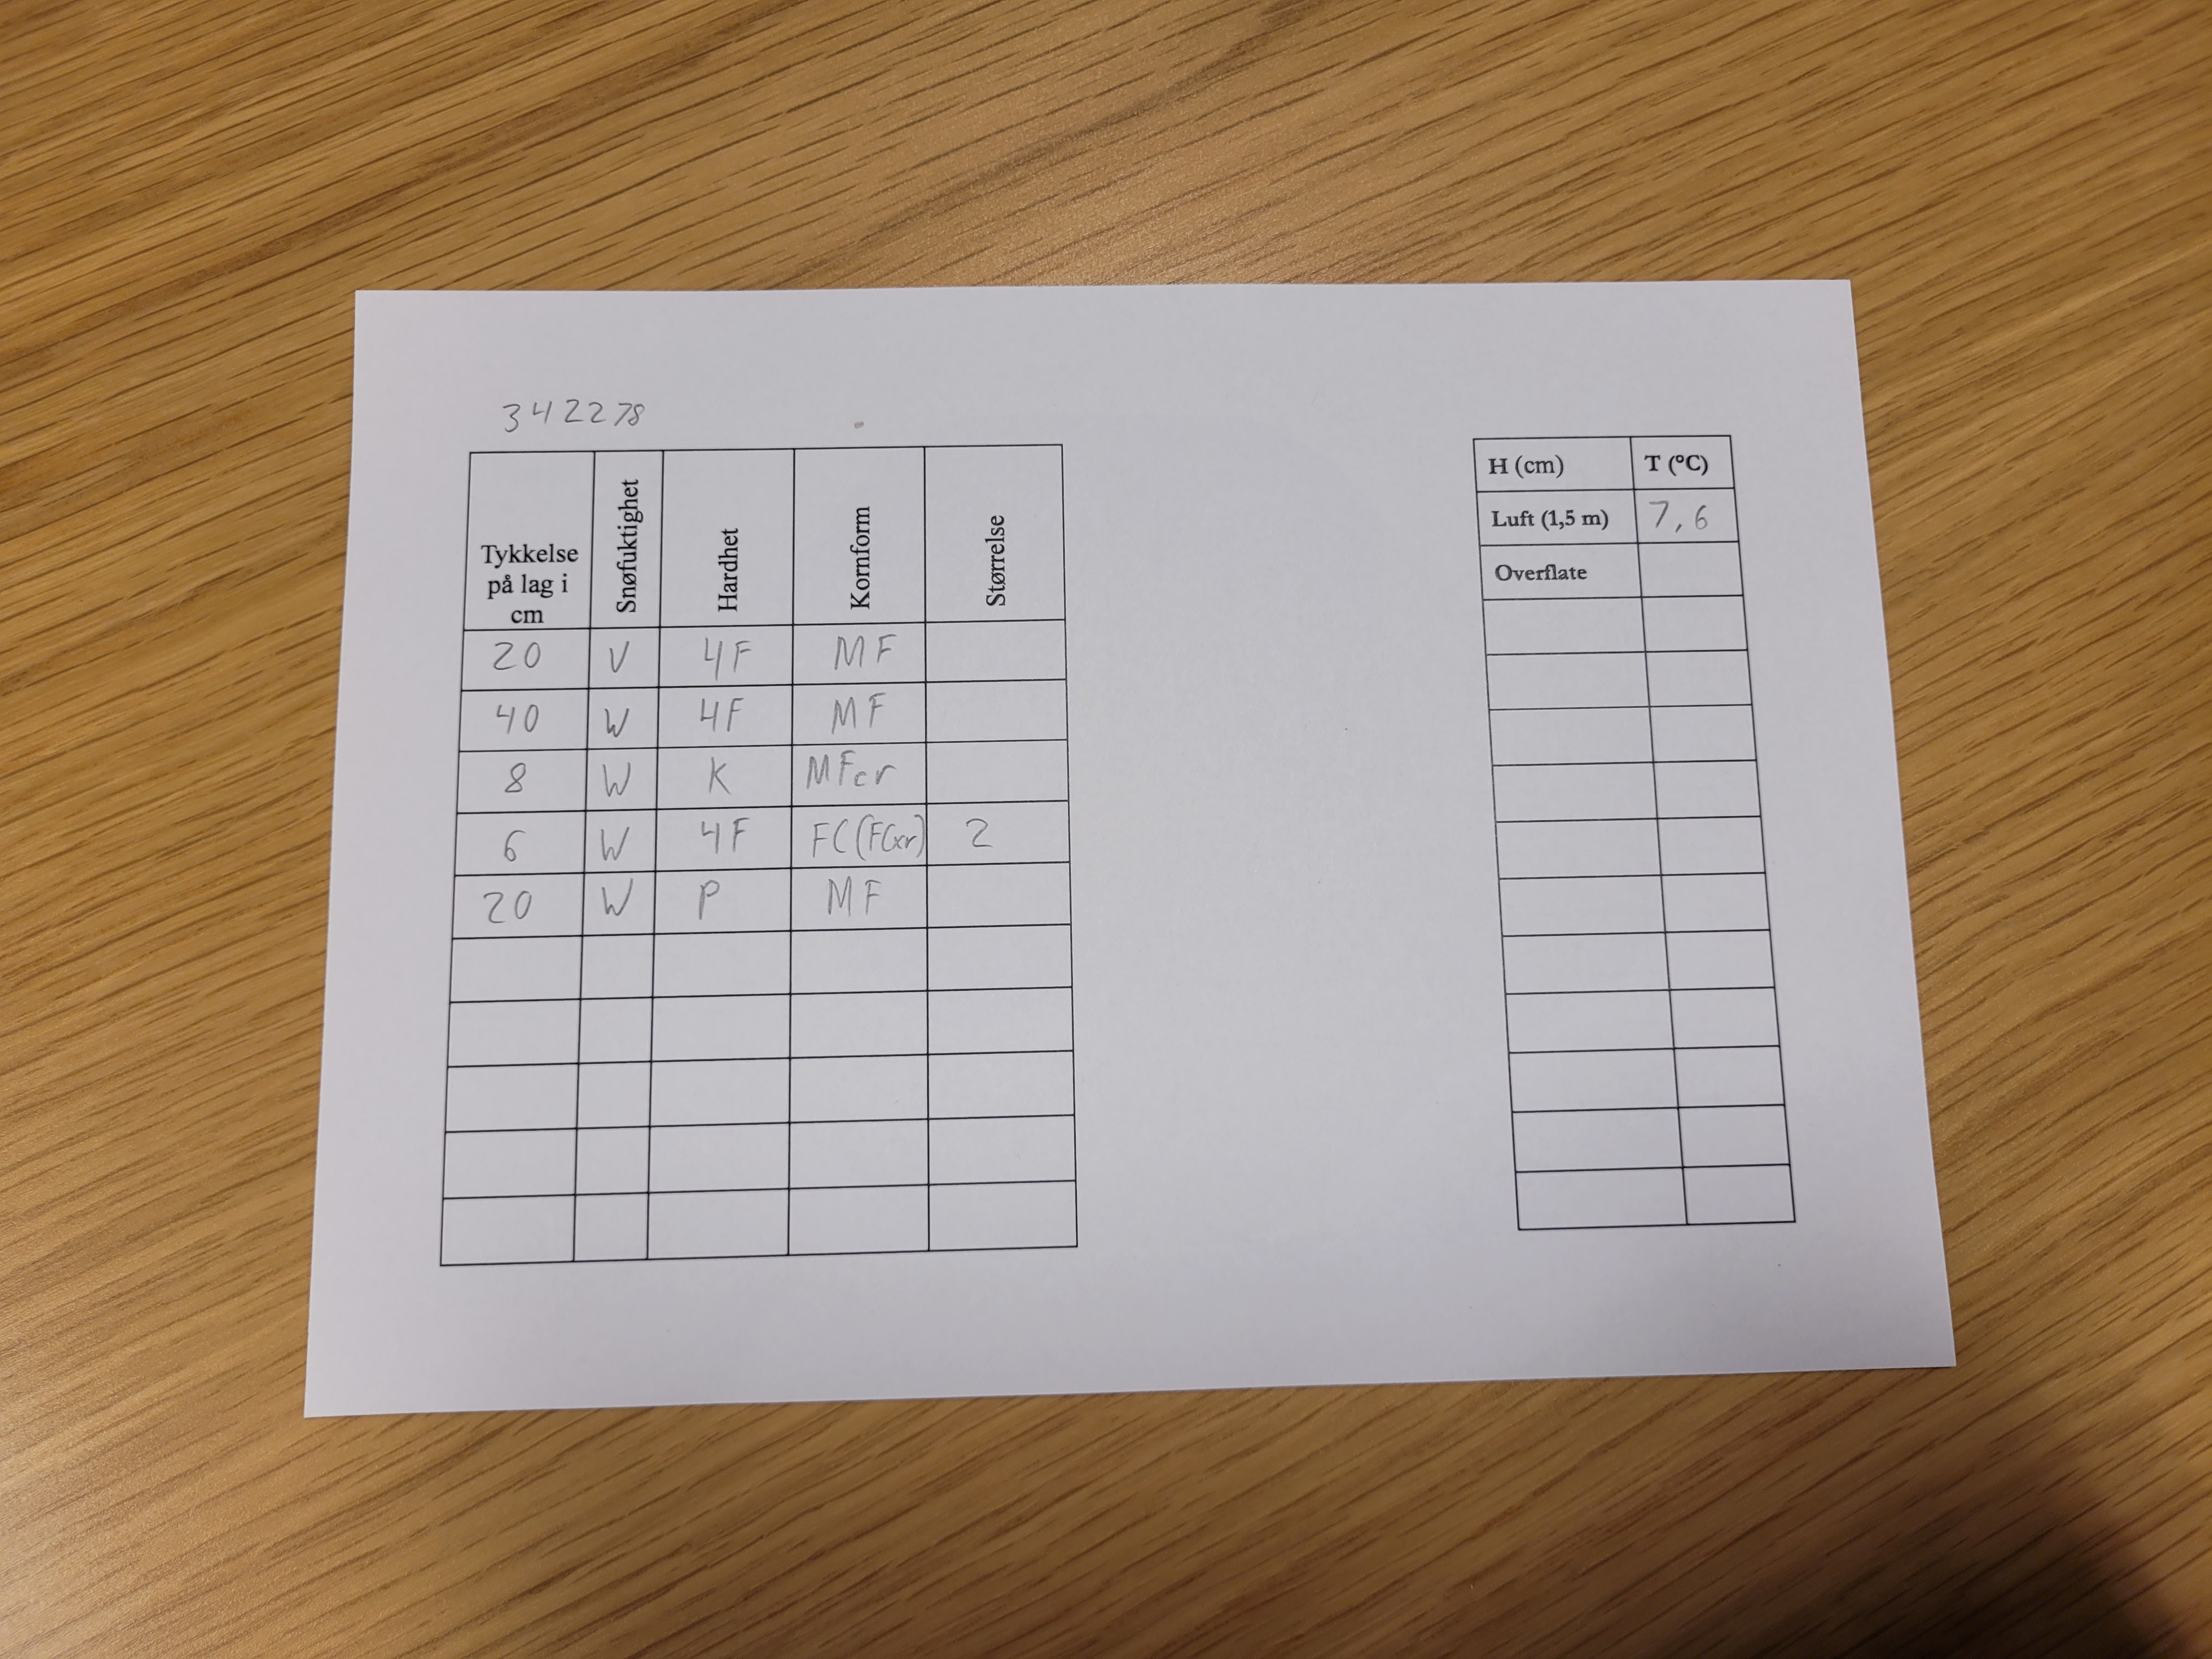 342278
Tykkelse på lag i cm Snøfuktighet Hardhet Kornform Størrelse
20 V 4F MF
40 W 4F MF
8 W K MFcr
6 W 4F FC(FCxr) 2
20 W P MF
H (cm) T (°C)
Luft (1,5 m) 7,6
Overflate